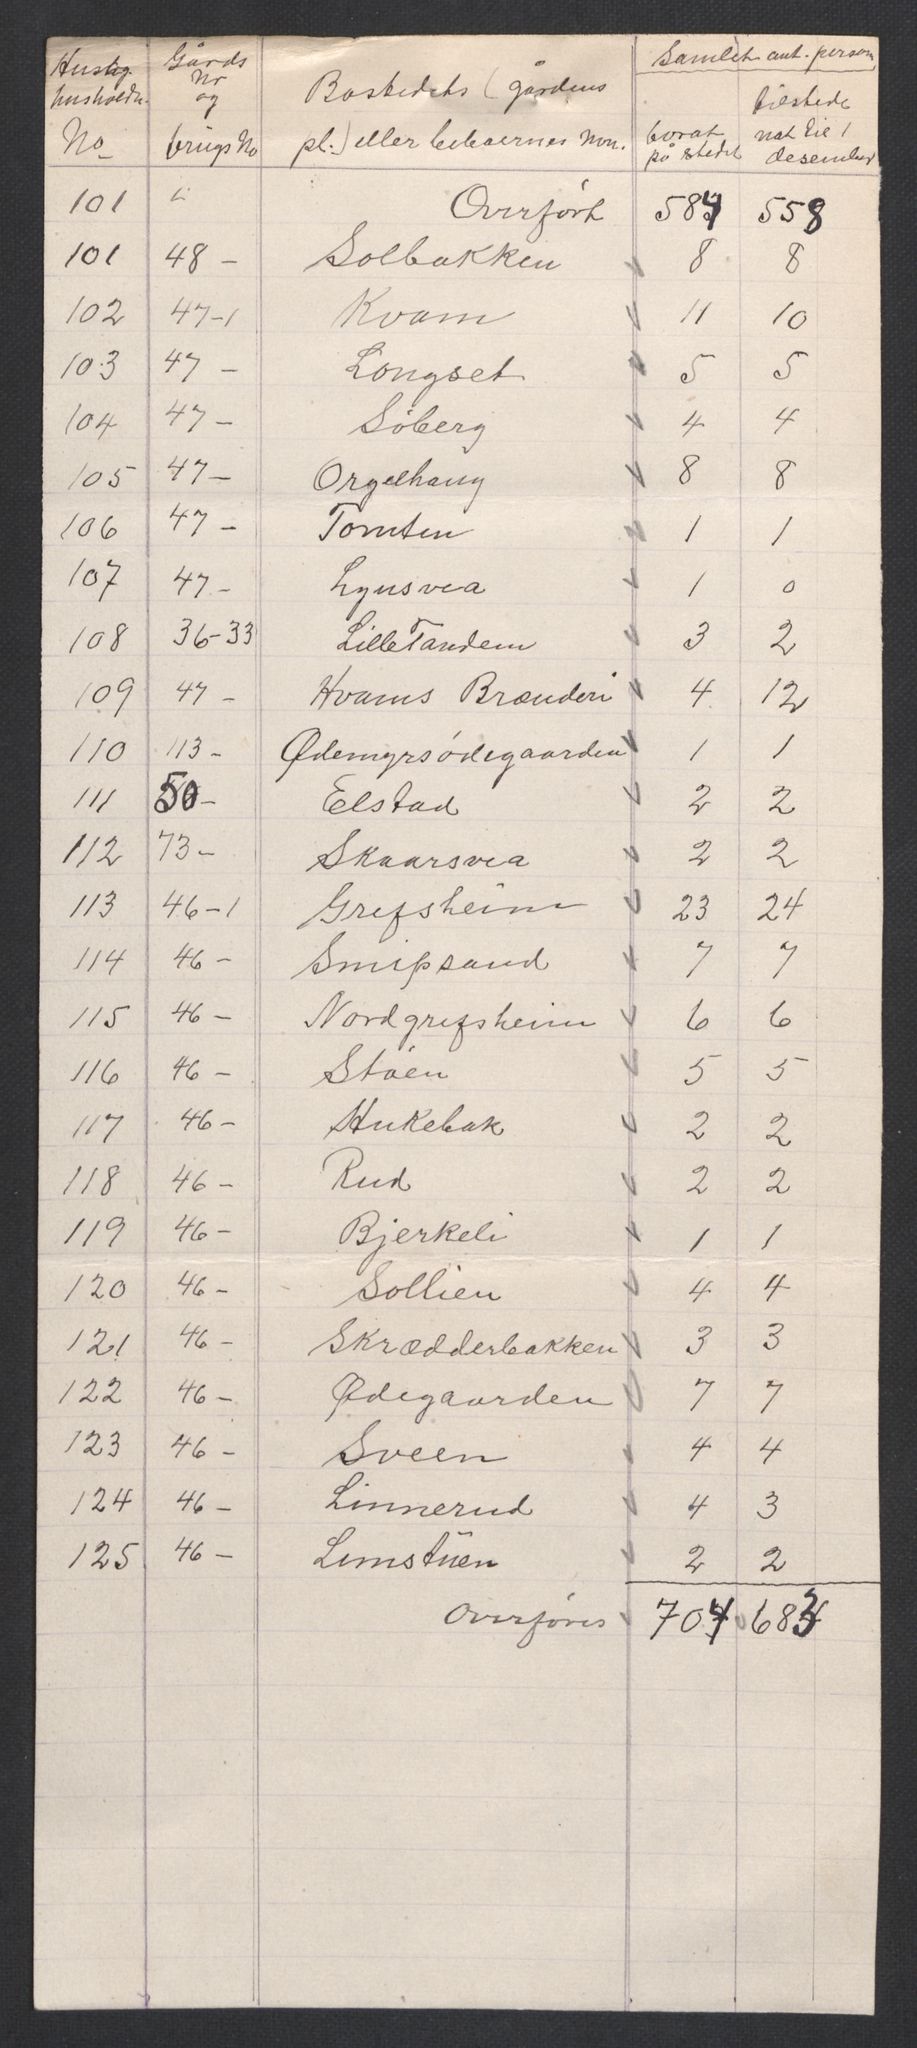 Husly. Gårds Samlet ant. person
husholdn. No og Bostedets (gårdens tilstede
No brugs No pl.) eller beboernes Nvn. borat på stedet nat til 1 desember
101 " Overført 584 558
101 48 - Solbakken 8 8
102 47-1 Kvam 11 10
103 47 - Longset 5 5
104 47 - Söberg 4 4
105 47 - Orgelhaug 8 8
106 47 - Tomten 1 1
107 47 - Lynsvea 1 0
108 36-33 Lille Tandem 3 2
109 47 - Hvams Brænderi 4 12
110 113 - Ødemyrsödegaarden 1 1
111 50 - Elstad 2 2
112 73 - Skaarsvea 2 2
113 46-1 Grefsheim 23 24
114 46 - Smipsand 7 7
115 46 - Nordgrefsheim 6 6
116 46 - Stöen 5 5
117 46 - Hukebak 2 2
118 46 - Rud 2 2
119 46 - Bjerkeli 1 1
120 46 - Sollien 4 4
121 46 - Skrædderbakken 3 3
122 46 - Ødegaarden 7 7
123 46 - Sveen 4 4
124 46 - Linnerud 4 3
125 46 - Limstuen 2 2
Overföres 704 683